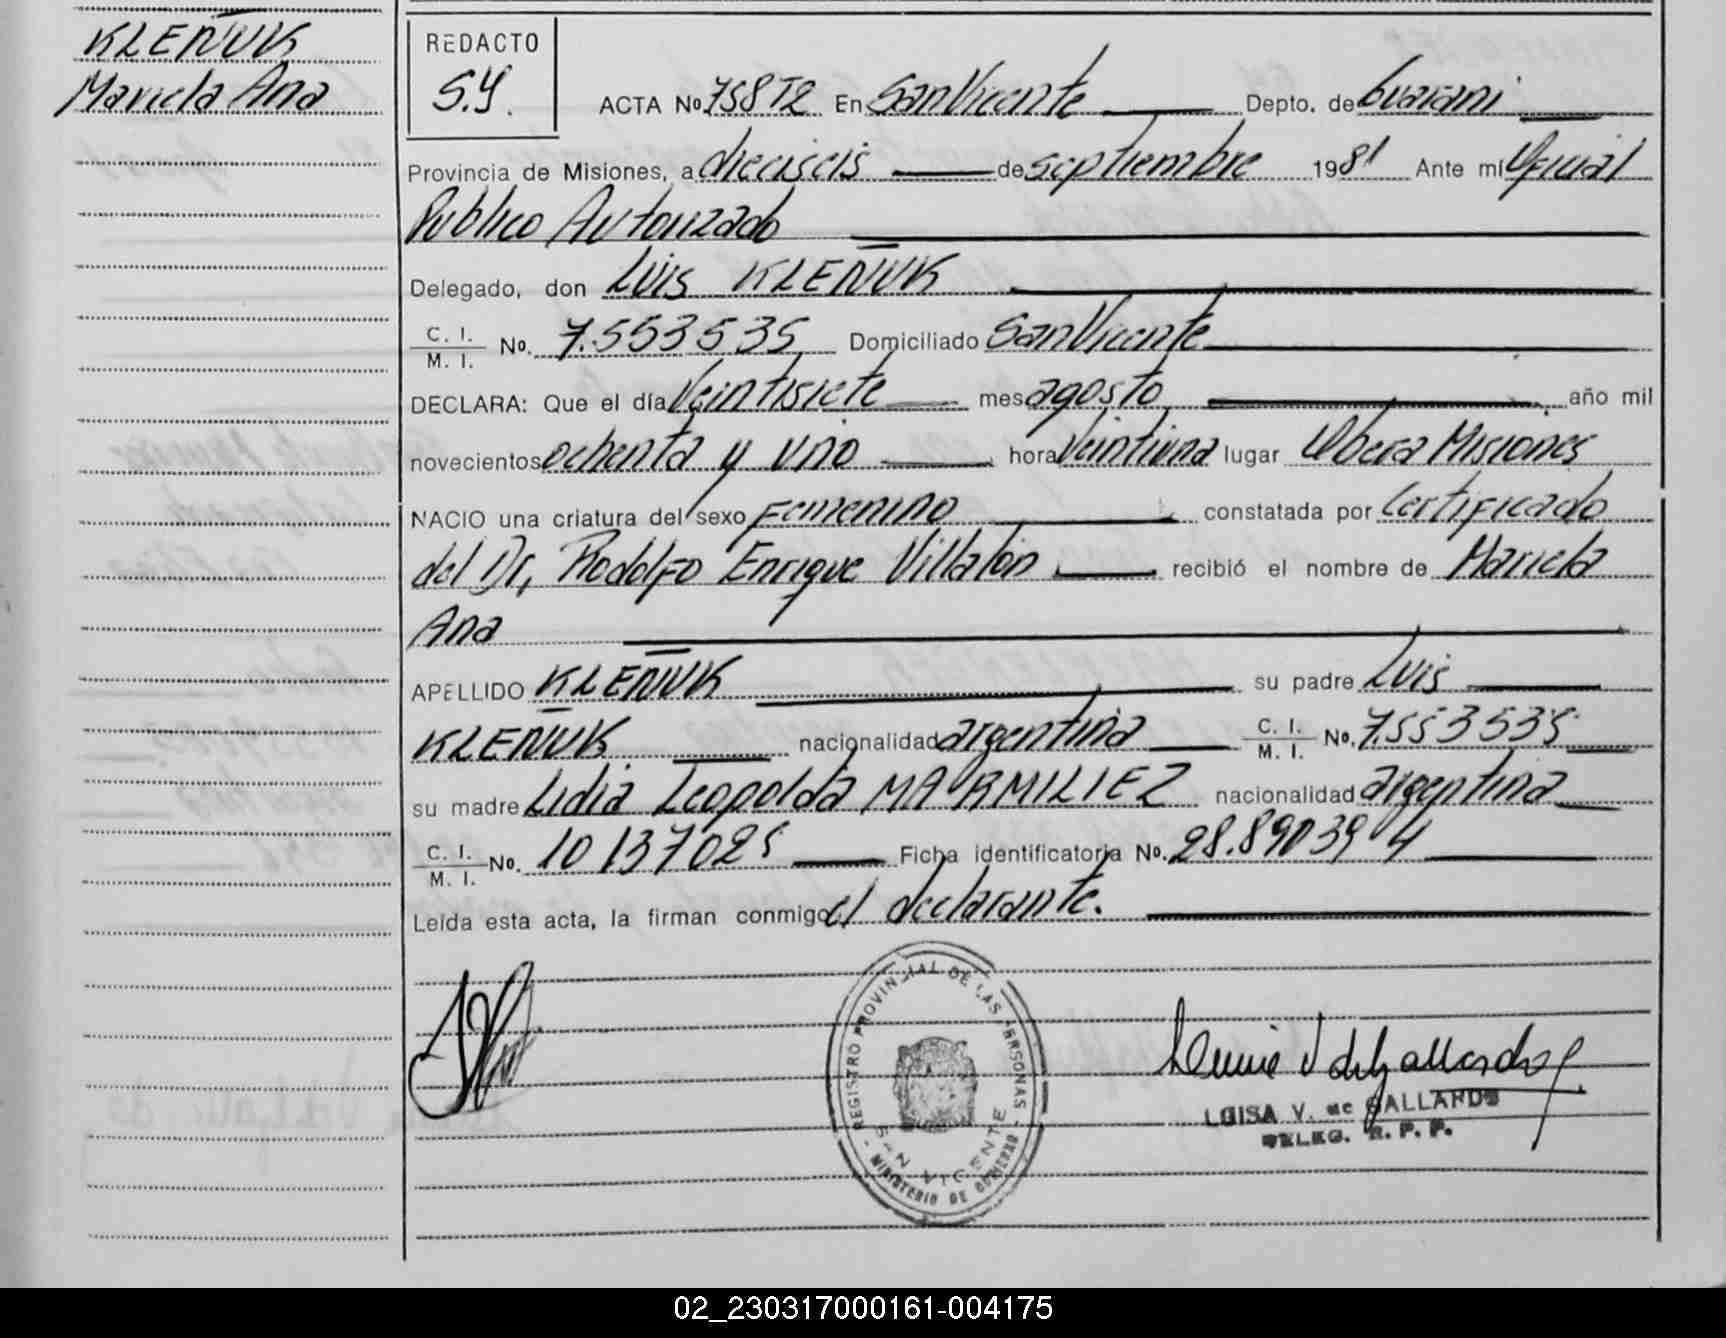 KLEÑUK
Mariela Ana
REDACTO
S.Y.
ACTA No 758T2 En San Vicente Depto. de Guarani
Provincia de Misiones, a dieciseis de septiembre 1981 Ante mi Oficial
Publico Autorizado
Delegado, don Luis KLEÑUK
C. I.
M. I. No. 7.553535 Domiciliado San Vicente
DECLARA: Que el día Veintisiete mes agosto año mil
novecientos ochenta y uno hora Veintiuna lugar Obera Misiones
NACIO una criatura del sexo Femenino constatada por Certificado
del Dr, Rodolfo Enrique Villalón recibió el nombre de Mariela
Ana
APELLIDO KLEÑUK su padre Luis
KLEÑUK nacionalidad argentina C. I.
M. I. No. 7.553535
su madre Lidia Leopolda MARMILIEZ nacionalidad argentina
C. I.
M. I. No. 10137025 Ficha identificatoria No. 28.890394
Leída esta acta, la firman conmigo el declarante.
REGISTRO PROVINCIAL DE LAS PERSONAS
SAN VICENTE
MINISTERIO DE GOBIERNO
LUISA V. de GALLARDO
DELEG. R. P. P.
02_230317000161-004175